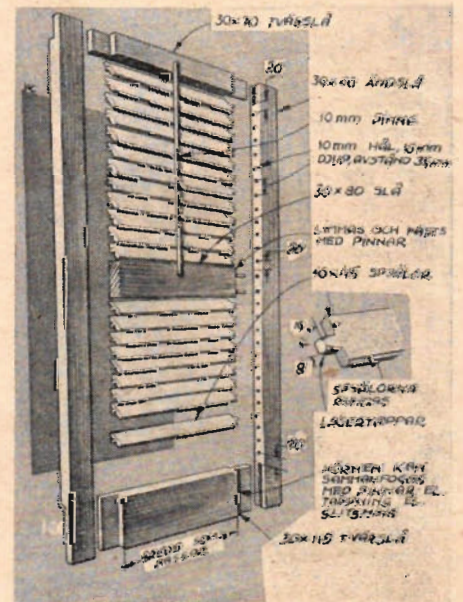 30×70 TVÄRSLÅ
20
10 mm PINNE
10 mm HÅL, 15 mm
DJUP, AVSTÅND 35 mm
30×80 SLÅ
LIMMAS OCH
MED PINNAR
80
SPJÄLOR
8
SPJÄLORNA
RUNDAS
LAGERTAPPAR
HÖRNEN KAN
SAMMANFOGAS
MED PINNAR, EL.
TAPPNING EL.
30×115 TVÄRSLÅ